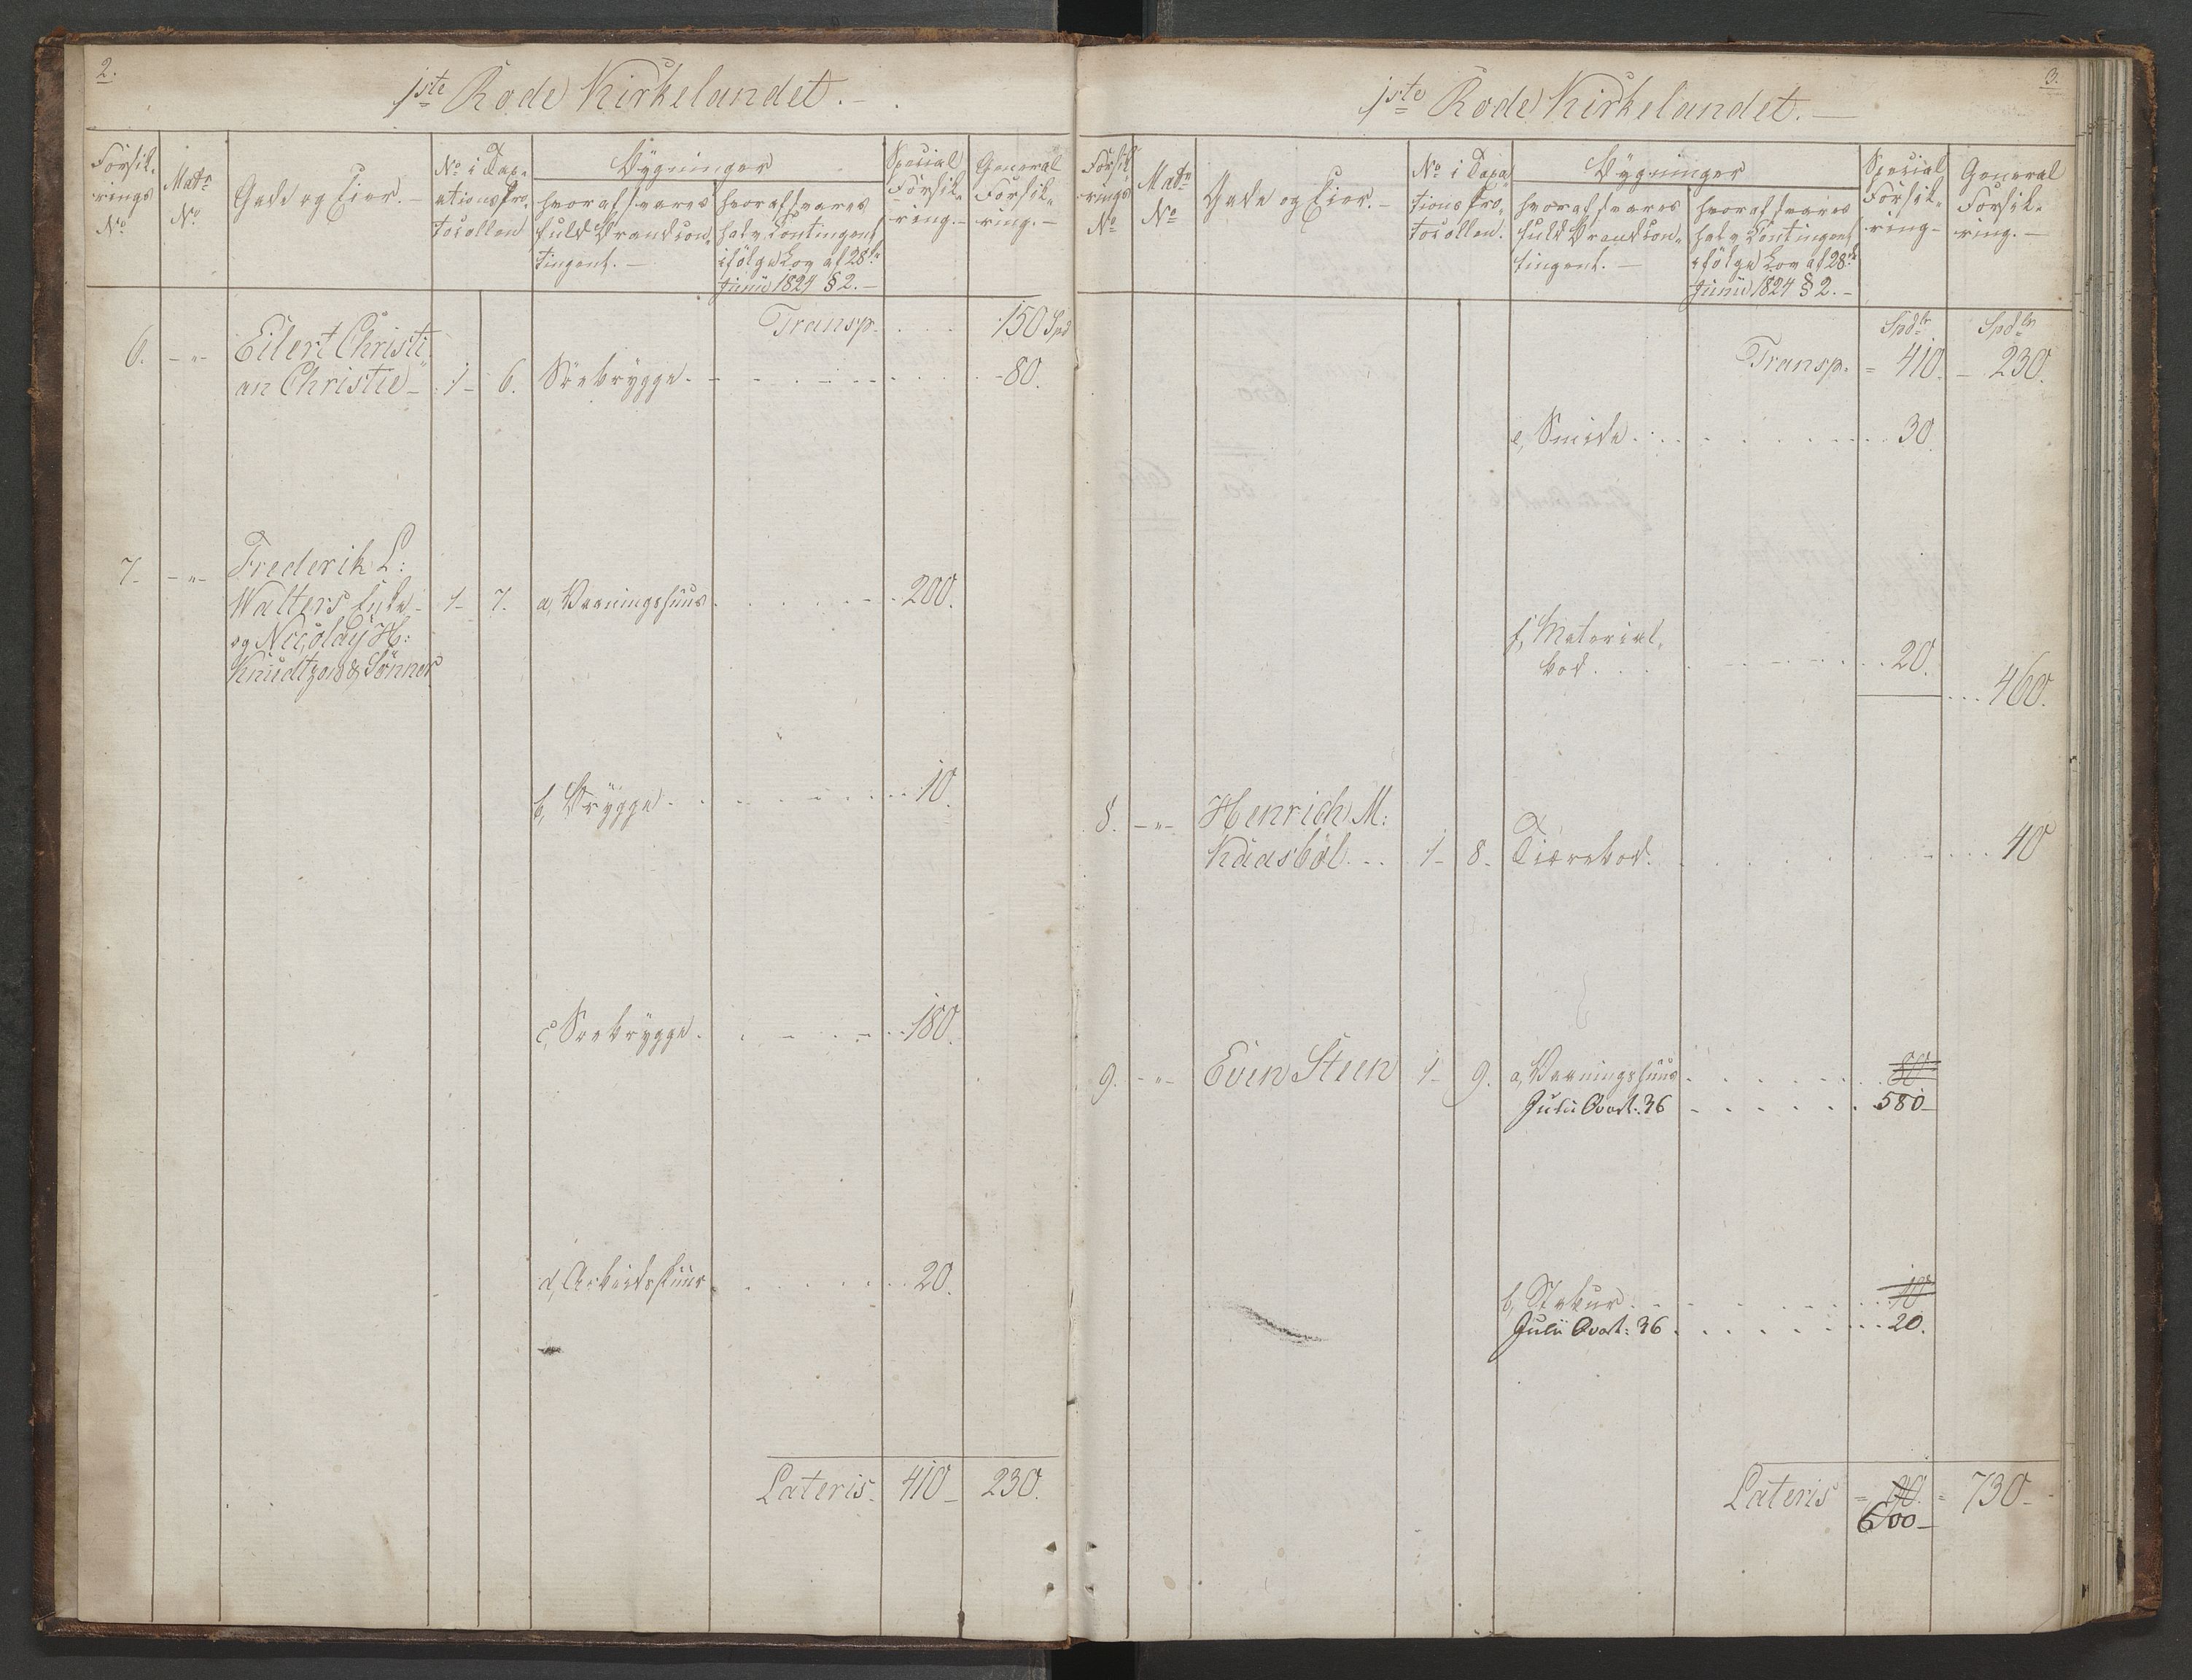 2.
1ste Rode Kirkelandet. -
Forsik-
rings
No
Matr
No
Gade og Eier. -
No i Tax-
ationspro-
tocollen
Bygninger
hvoraf svares
fuld Brandcon-
tingent. -
hvoraf svares
halv Contingent
ifølge Lov af 28de
Junii 1824 § 2. -
Special
Forsik-
ring. -
General
Forsik-
ring. -
Transp. . . . 150 Spd
6. - " - Eilert Christi
an Christie - 1 - 6. Søebrygge. - - - - - - 80.
7. - " - Frederik L:
Walters Enke - 1 - 7. a, Vaaningshuus . . . . . 200.
og Nicolay H:
Knudtzon & Sønner
b, Brygge . . . . . . 10.
c, Søebrygge . . . . . 180.
d, Arbeidshuus . . . . . 20.
Lateris. 410 - 230.
3.
1ste Rode Kirkelandet. -
Forsik-
rings
No
Matr
No
Gade og Eier. -
No i Taxa-
tionspro-
tocollen.
Bygninger
hvoraf svares
fuld Brandcon-
tingent. -
hvoraf svares
halv Contingent
ifølge Lov af 28de
Junii 1824 § 2. -
Special
Forsik-
ring -
General
Forsik-
ring. -
Spdlr Spdlr
Transp. = 410. - 230.
e, Smide . . . . . . 30
f, Material-
bod . . . . . . 20.
. . . 460.
8. - " - Henrich M:
Kaasbøl . . . 1 - 8 - Tiærebod . . . . . . 40
9. - " - Even Steen 1 - 9. a, Vaaningshuus . . . . . . 80
Julii Qvart: 36 . . . . . . 580 -
b, Stabur . . . . . . 10
Julii Qvart: 36 . . . . . . 20.
Lateris = 90. = 730 -
600 -